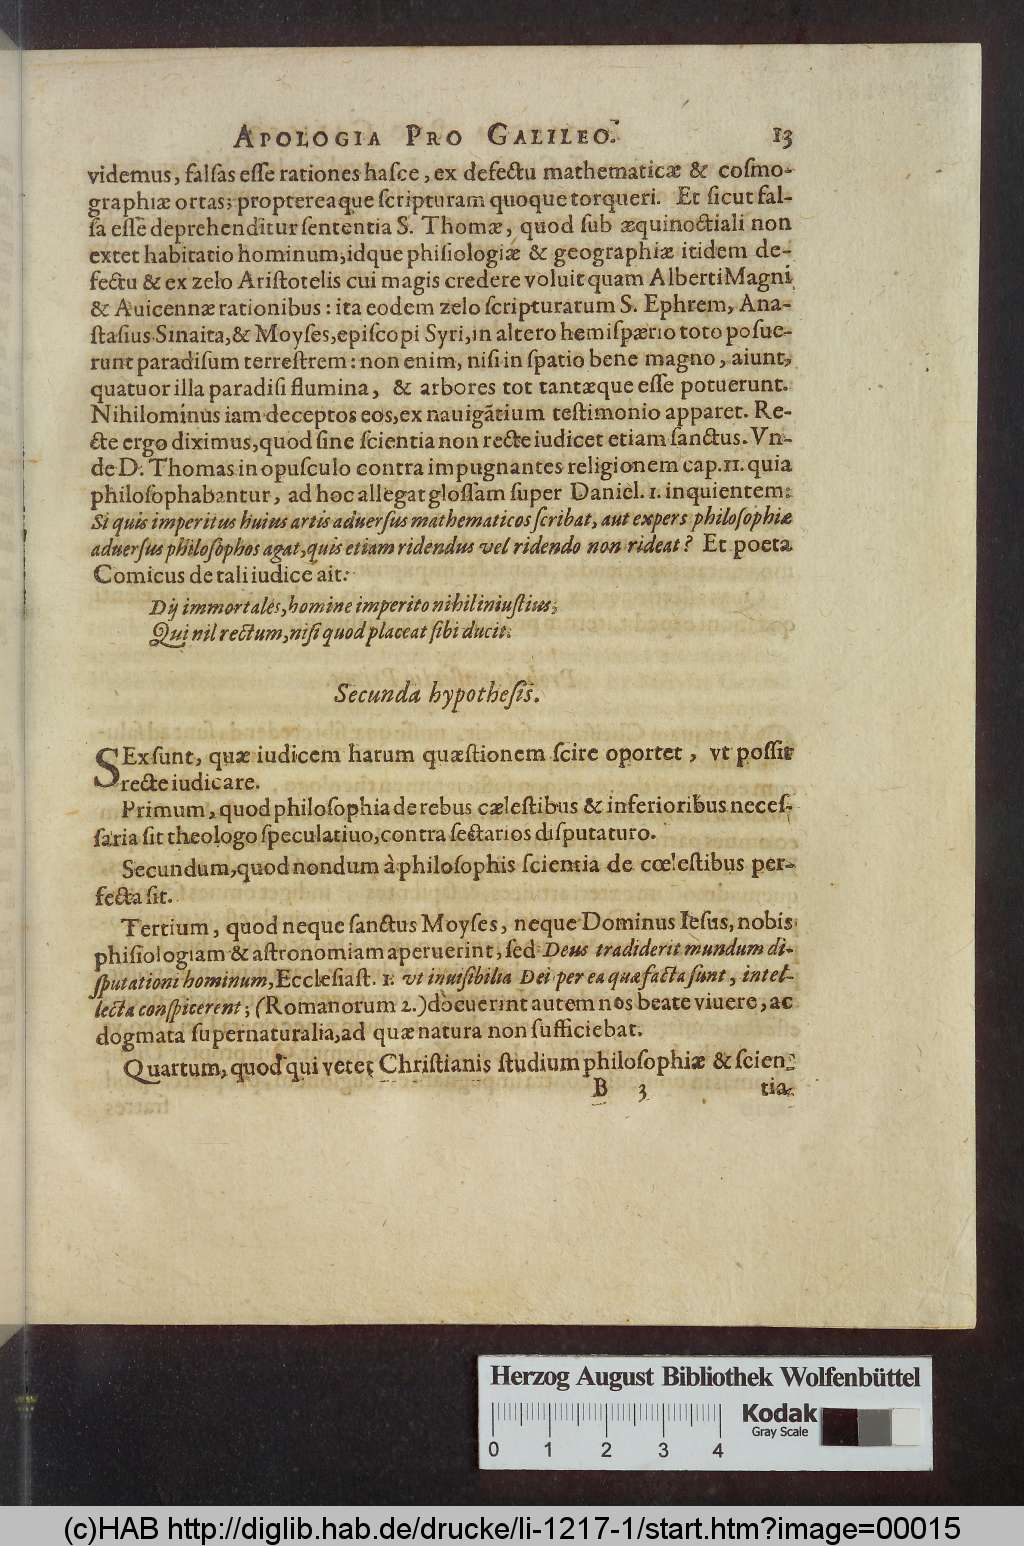 APOLOGIA PRO GALILEO. 13
videmus, falſas eſſe rationes haſce, ex defectu mathematicæ & coſmo-
graphiæ ortas; proptereaque ſcripturam quoque torqueri. Et ſicut fal-
ſa eſſe deprehenditur ſententia S. Thomæ, quod ſub æquinoctiali non
extet habitatio hominum, idque phiſiologiæ & geographiæ itidem de-
fectu & ex zelo Ariſtotelis cui magis credere voluit quam Alberti Magni
& Auicennæ rationibus: ita eodem zelo ſcripturarum S. Ephrem, Ana-
ſtaſius Sinaita, & Moyſes, epiſcopi Syri, in altero hemiſpærio toto poſue-
runt paradiſum terreſtrem: non enim, niſi in ſpatio bene magno, aiunt,
quatuor illa paradiſi flumina, & arbores tot tantæque eſſe potuerunt.
Nihilominus iam deceptos eos, ex nauigãtium teſtimonio apparet. Re-
cte ergo diximus, quod ſine ſcientia non recte iudicet etiam ſanctus. Vn-
de D. Thomas in opuſculo contra impugnantes religionem cap. 11. quia
philoſophabantur, ad hoc allegat gloſſam ſuper Daniel. 1. inquientem:
Si quis imperitus huius artis aduerſus mathematicos ſcribat, aut expers philoſophiæ
aduerſus philoſophos agat, quis etiam ridendus vel ridendo non rideat? Et poeta
Comicus de tali iudice ait:
Dij immortales, homine imperito nihil iniuſtius,
Qui nil rectum, niſi quod placeat ſibi ducit.
Secunda hypotheſis.
SEx ſunt, quæ iudicem harum quæſtionem ſcire oportet, vt poſſit
recte iudicare.
Primum, quod philoſophia de rebus cæleſtibus & inferioribus neceſ-
ſaria ſit theologo ſpeculatiuo, contra ſectarios diſputaturo.
Secundum, quod nondum à philoſophis ſcientia de cœleſtibus per-
fecta ſit.
Tertium, quod neque ſanctus Moyſes, neque Dominus Ieſus, nobis
phiſiologiam & aſtronomiam aperuerint, ſed Deus tradiderit mundum di-
ſputationi hominum, Eccleſiaſt. 1. vt inuiſibilia Dei per ea quæ facta ſunt, intel-
lecta conſpicerent; (Romanorum 2.) docuerint autem nos beate viuere, ac
dogmata ſupernaturalia, ad quæ natura non ſufficiebat.
Quartum, quod qui vetet Chriſtianis ſtudium philoſophiæ & ſcien-
B 3 tia-
Herzog August Bibliothek Wolfenbüttel
Kodak
Gray Scale
0 1 2 3 4
(c)HAB http://diglib.hab.de/drucke/li-1217-1/start.htm?image=00015